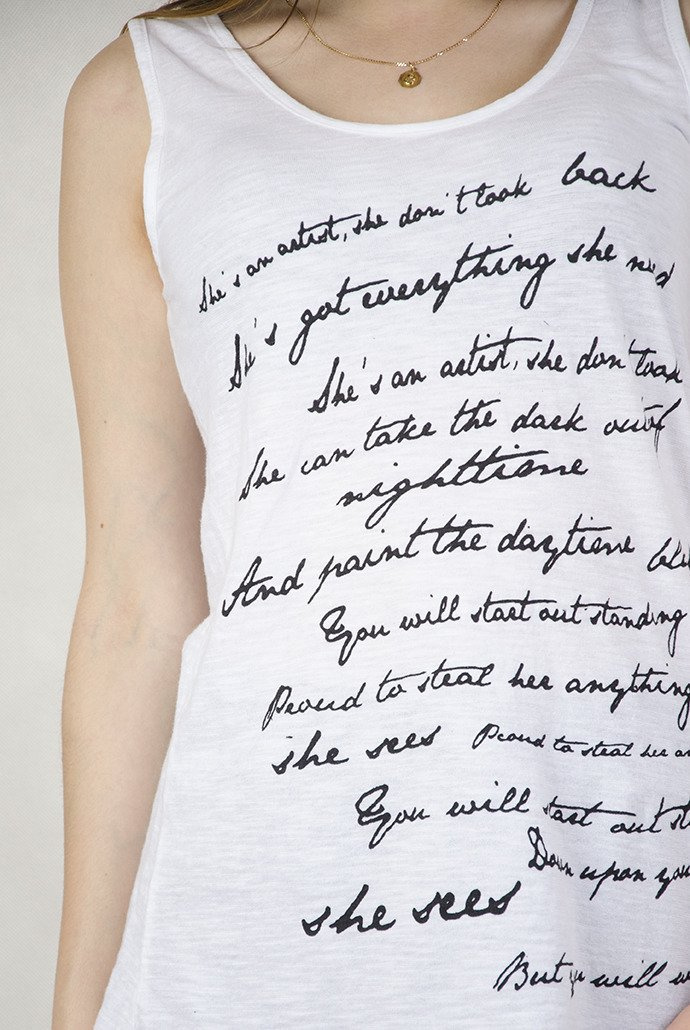 She's an artist, she don't look back
She's got everything she need
She's an artist, she don't look
She can take the dark out of
nighttime
And paint the daytime
You will start out standing
Proud to steal her anything
she sees Proud to steal her
You will start out
Down upon
she sees
But you will